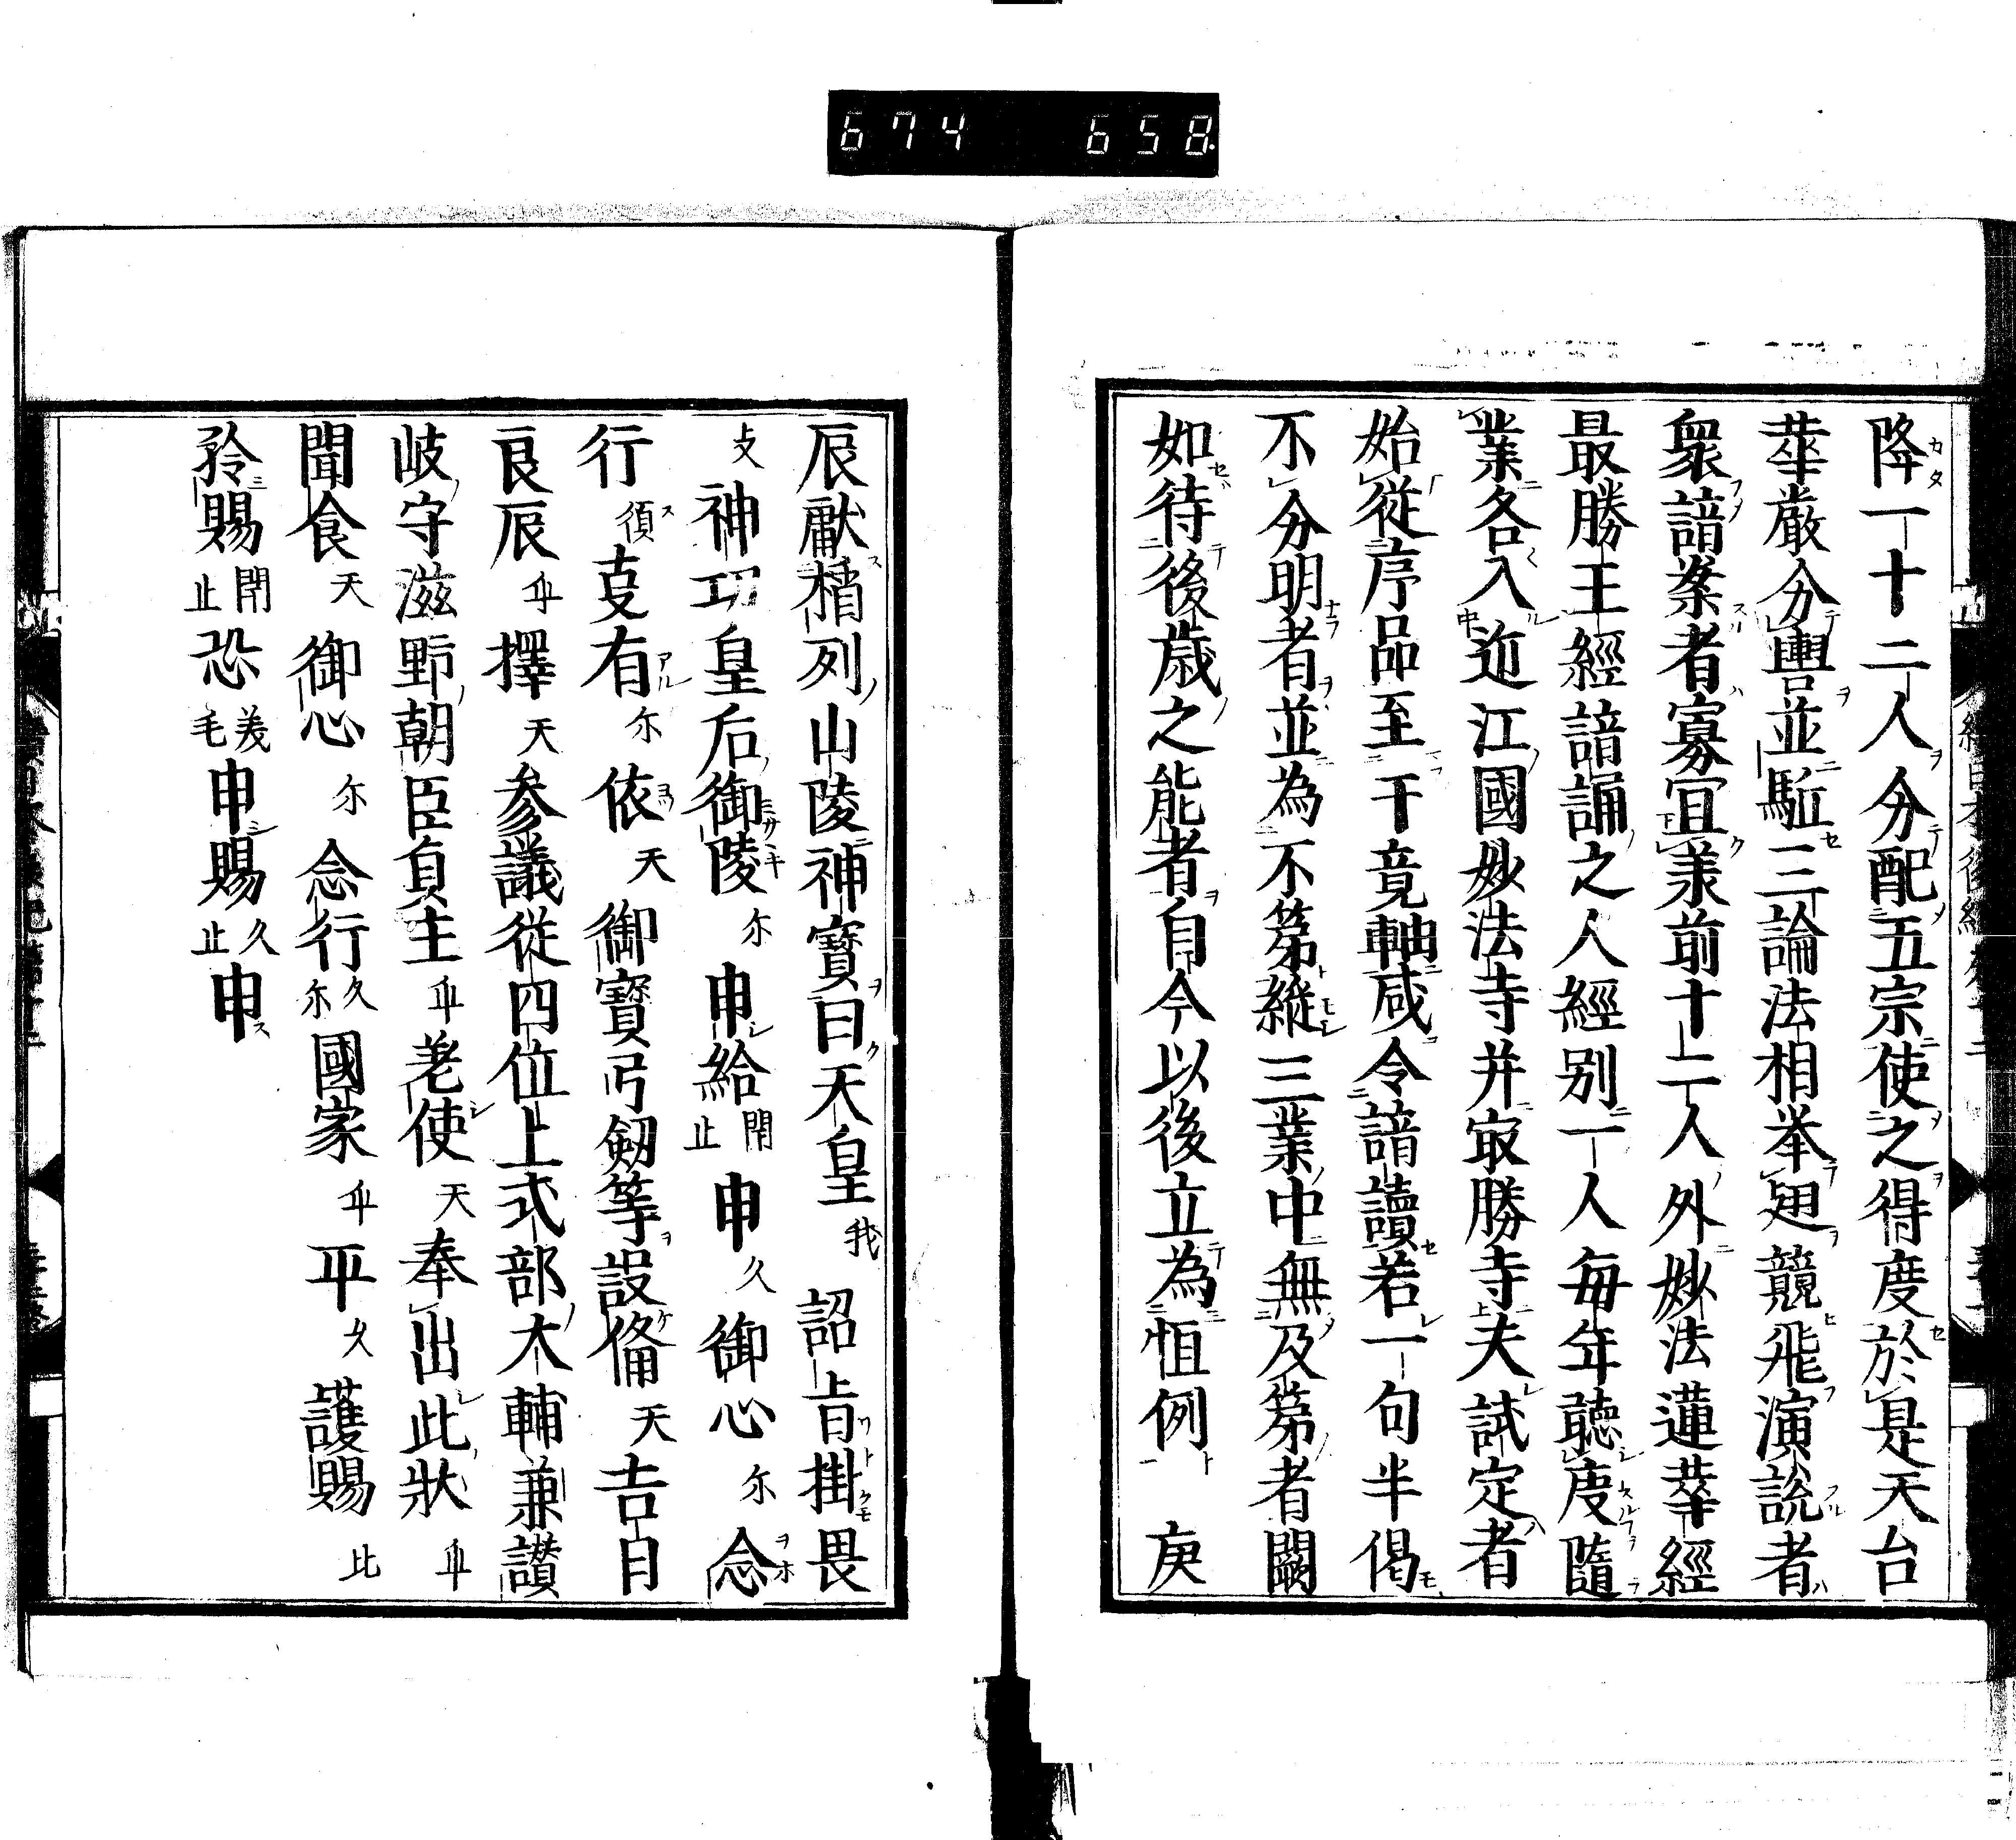 674 658
降一十二人分配五宗使之得度於是天台
華厳分轡並駈三論法相挙翅競飛演説者
衆諳案者寡宜業前十二人外妙法蓮華経
最勝王經諳誦之人經別一人毎年聴度隨
業各入近江國妙法寺并最勝寺夫試定者
始從序品至于竟軸咸令諳讀若一句半偈
不分明者並為不第縱三業中無及第者闕
如待後歳之能者自今以後立為恒例 庚
辰獻楯列山陵神寶曰天皇我詔旨掛畏
支神功皇后御陵尓申給閇止申久御心尓念
行須叓有尓依天御寶弓劔等設俻天吉日
良辰乎擇天参議從四位上式部大輔兼讃
岐守滋野朝臣貞主乎差使天奉出此状乎
聞食天御心尓念行久尓國家乎平久護賜比
矜賜閇止恐美毛申賜久止申